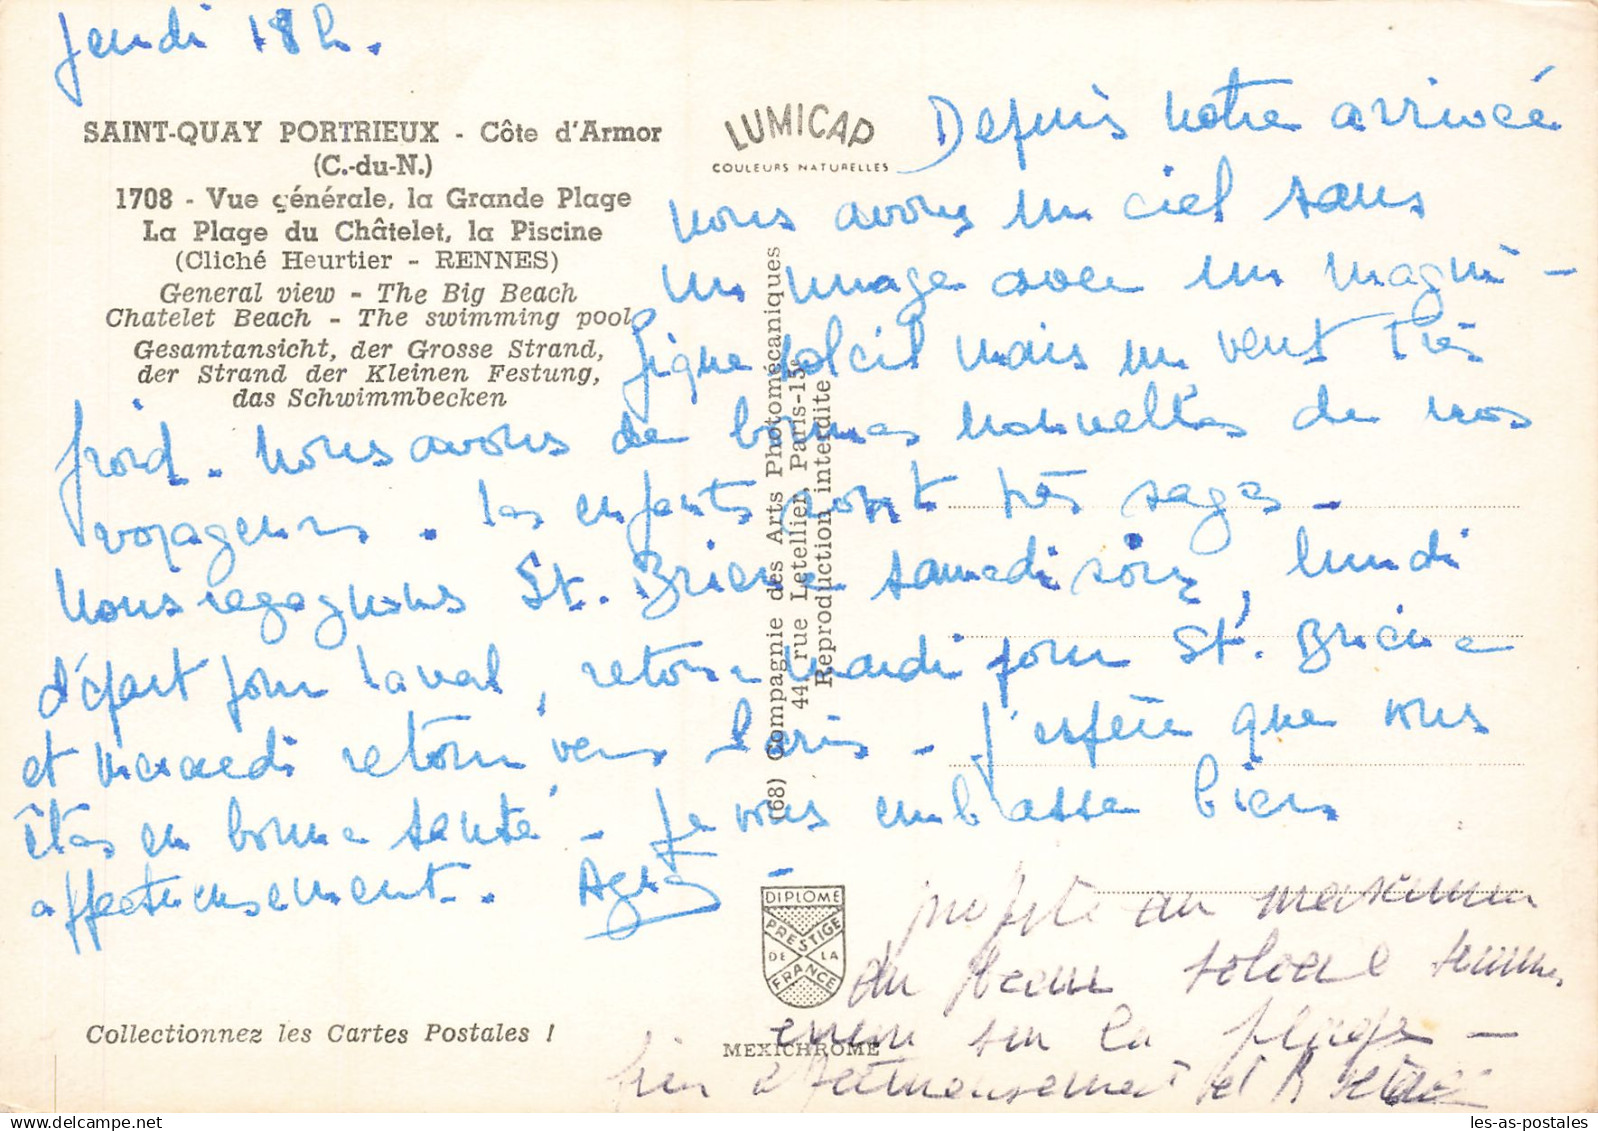 Jeudi 18 h.
SAINT-QUAY PORTRIEUX - Côte d'Armor
(C.-du-N.)
1708 - Vue générale, la Grande Plage
La Plage du Châtelet, la Piscine
(Cliché Heurtier - RENNES)
General view - The Big Beach
Chatelet Beach - The swimming pool
Gesamtansicht, der Grosse Strand,
der Strand der Kleinen Festung,
das Schwimmbecken
LUMICAP
COULEURS NATURELLES
Depuis notre arrivée
nous avons un ciel sans
un nuage avec un magni-
fique soleil mais un vent très
froid. Nous avons de bonnes nouvelles de nos
voyageurs. Les enfants sont très sages.
Nous regagnons St. Brieuc samedi soir, lundi
départ pour Laval, retour mardi pour St. Brieuc
et mercredi retour vers Paris - J'espère que vous
êtes en bonne santé - Je vous embrasse bien
affectueusement. Agnès -
(68) Compagnie des Arts Photomécaniques
44, rue Letellier, Paris-15e
Reproduction interdite
DIPLOME
PRESTIGE
DE LA
FRANCE
MEXICHROME
Collectionnez les Cartes Postales !
profite au maximum
du beau soleil
sur la plage -
bien affectueusement et à
les-as-postales